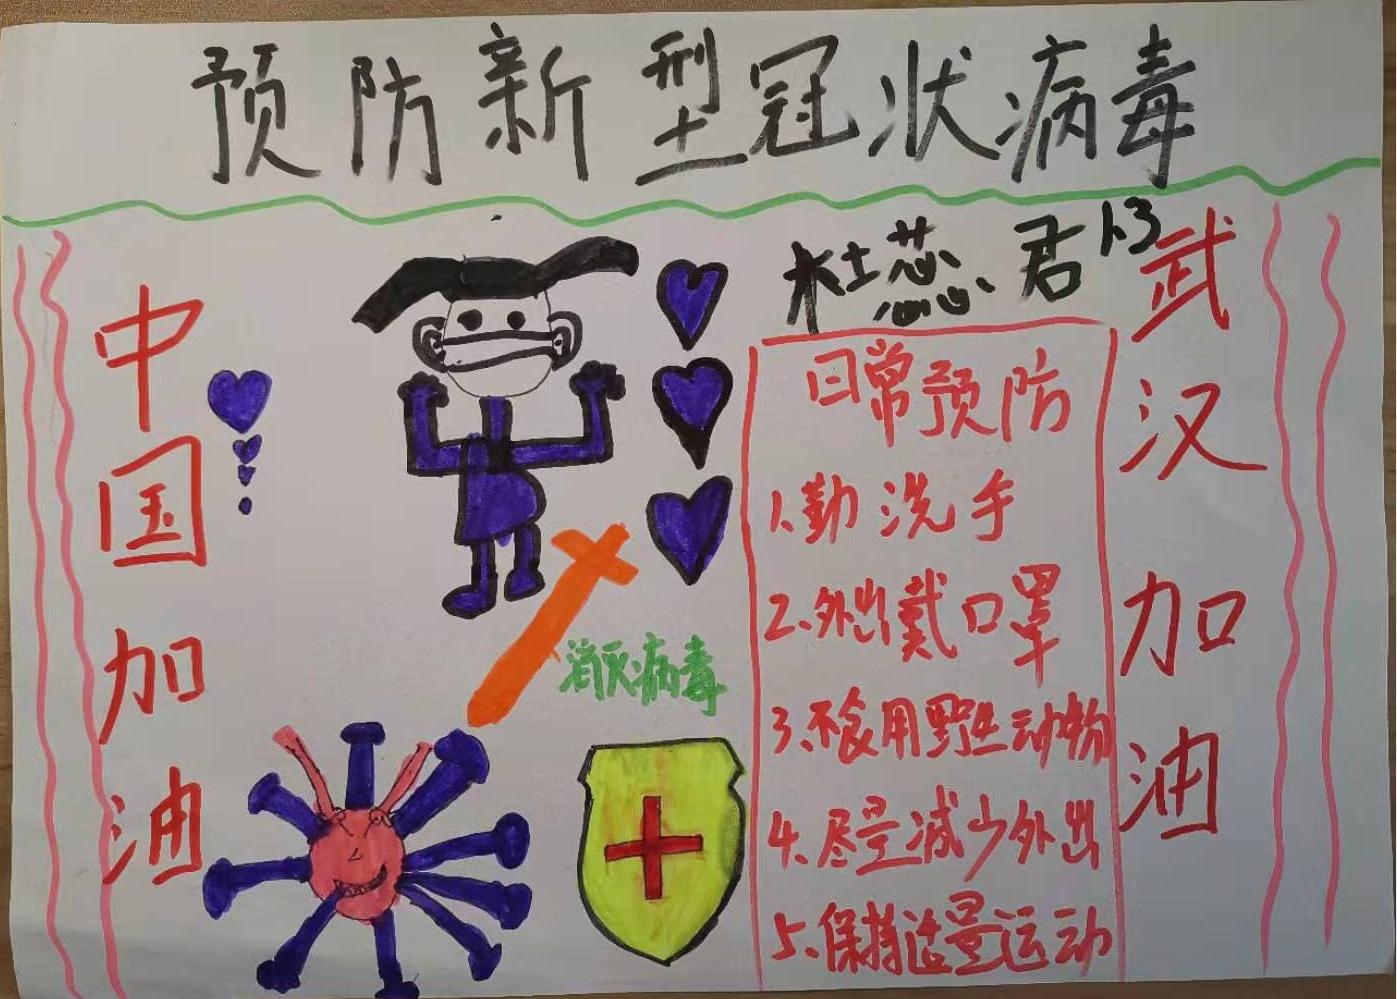 预防新型冠状病毒
杜蕊君 1.3
中国加油
消灭病毒
日常预防
1.勤洗手
2.外出戴口罩
3.不食用野生动物
4.尽量减少外出
5.保持适量运动
武汉加油